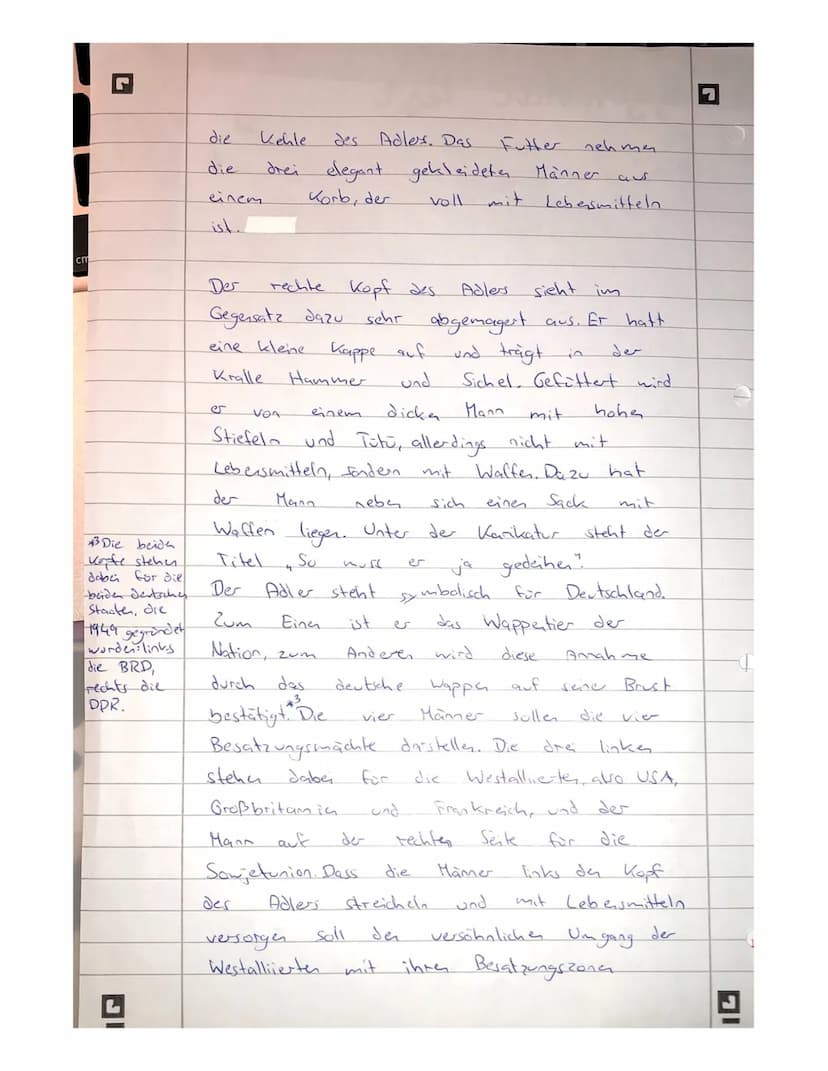 die Kehle des Adlers. Das Futter nehmen
die drei elegant gekleideten Männer aus
einem Korb, der voll mit Lebensmitteln
ist.
Der rechte Kopf des Adlers sieht im
Gegensatz dazu sehr abgemagert aus. Er hatt
eine kleine Kappe auf und trägt in der
Kralle Hammer und Sichel. Gefüttert wird
er von einem dicken Mann mit hohen
Stiefeln und Tütü, allerdings nicht mit
Lebensmitteln, sondern mit Waffen. Dazu hat
der Mann neben sich einen Sack mit
Waffen liegen. Unter der Karikatur steht der
Titel „So muss er ja gedeihen".
Der Adler steht symbolisch für Deutschland.
Zum Einen ist er das Wappentier der
Nation, zum Anderen wird diese Annahme
durch das deutsche Wappen auf seiner Brust
bestätigt.*3 Die vier Männer sollen die vier
Besatzungsmächte darstellen. Die drei linken
stehen dabei für die Westalliierten, also USA,
Großbritannien und Frankreich, und der
Mann auf der rechten Seite für die
Sowjetunion. Dass die Männer links den Kopf
des Adlers streicheln und mit Lebensmitteln
versorgen soll den versöhnlichen Umgang der
Westalliierten mit ihren Besatzungszonen
*3 Die beiden
Köpfe stehen
dabei für die
beiden deutschen
Staaten, die
1949 gegründet
wurden: links
die BRD,
rechts die
DDR.
cm